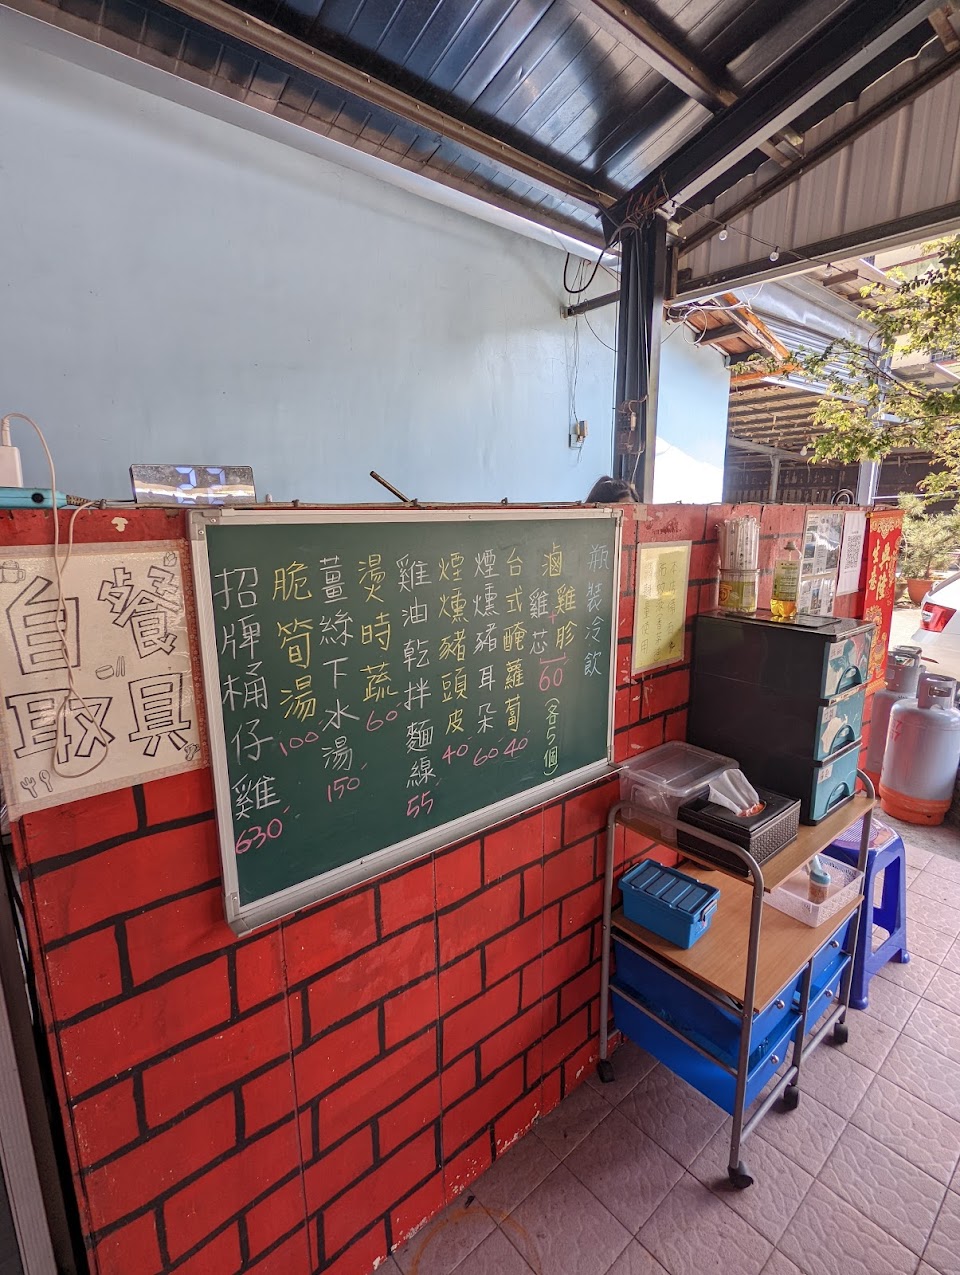 餐具
自取
招牌桶仔雞 630
脆筍湯 100
薑絲下水湯 150
燙時蔬 60
雞油乾拌麵線 55
煙燻豬頭皮 40
煙燻豬耳朵 60
台式醃蘿蔔 40
滷雞芯+雞胗 60 (各5個)
瓶裝冷飲
生意興隆